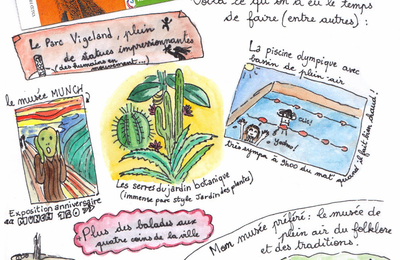 Voilà ce qu'on a eu le temps
de faire (entre autres) :
Le Parc Vigeland, plein
de statues impressionnantes
(des humains en
mouvement...)
La piscine olympique avec
bassin de plein air
très sympa à 9h00 du mat'
quand il fait bien chaud !
le musée MUNCH
Exposition anniversaire
MUNCH 150
Les serres du jardin botanique
(immense parc style Jardin des plantes)
Plus des balades aux
quatre coins de la ville
Mon musée préféré : le musée de
plein air du folklore
et des traditions.